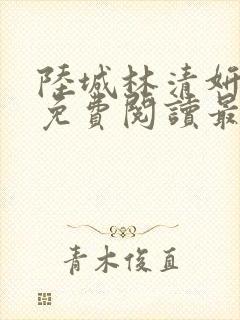 陸城林清妍
免費閱讀最
青木俊直